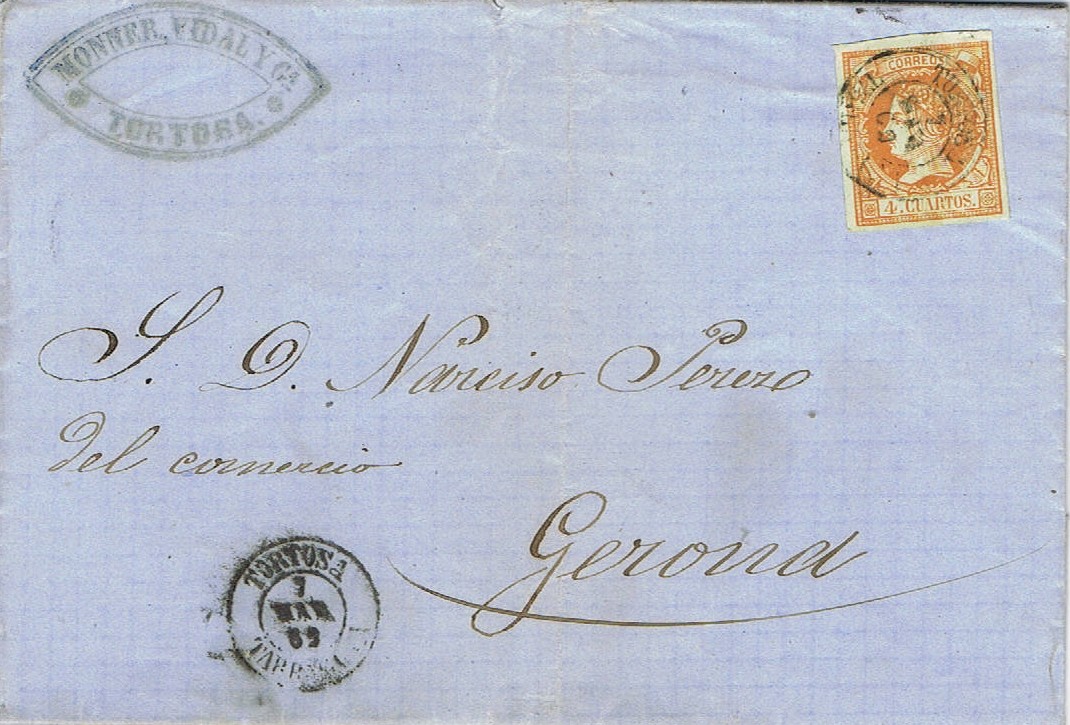 MONNER, VIDAL Y Cª.
TORTOSA.
CORREOS
4 CUARTOS.
S. D. Narciso Perez
del comercio
Gerona
TORTOSA
7
MAR